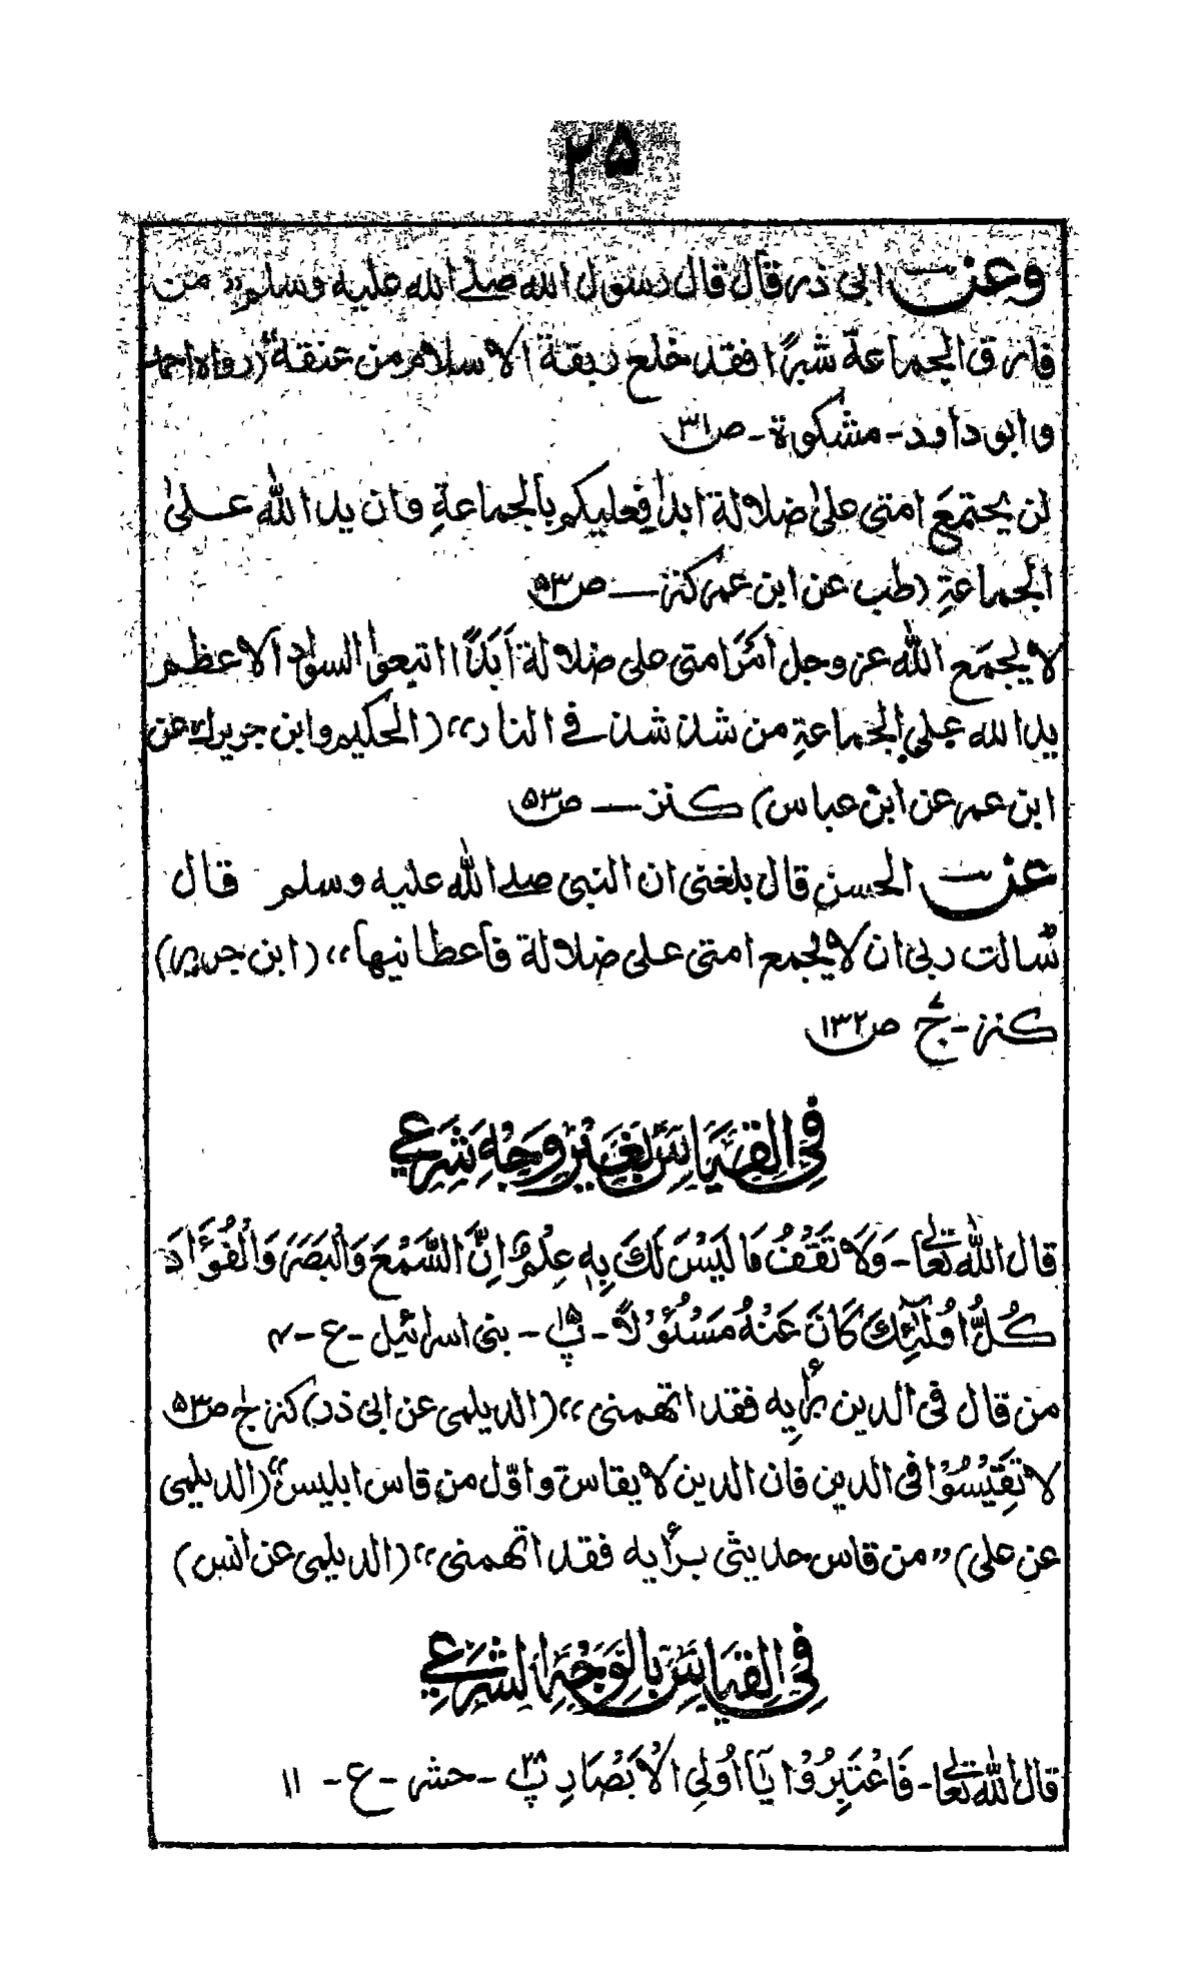 ۲۵
وعن ابی ذر قال قال رسول الله صلے الله علیه وسلم” من
فارق الجماعة شبرًا فقد خلع ربقة الاسلام من عنقه“ (رواه احمد
وابوداود - مشکوة - ص۳۱
لن یجتمع امتی علیٰ ضلالة ابدا فعلیکم بالجماعةِ وان ید الله عــلیٰ
الجماعةِ (طب عن ابن عمر کنز — ص۵۳
لا یجمع الله عز وجل اَمْرَ امتی علی ضلالة اَبَدًا اتبعوا السواد الاعظم
ید الله علی الجماعةِ من شذ شذ فے النار،، (الحکیم وابن جریر ك عن
ابن عمر عن ابن عباس) کنز — ص۵۳
عن الحسن قال بلغنی ان النبی صلے الله علیه وسلم قال
سالت ربی ان لا یجمع امتی علی ضلالة فاعطانیها،، (ابن جریر)
کنز - ج۷ ص۱۳۲
فِی الْقِیَاسِ بِغَیْرِ وَجْهِ شَرَعِی
قال الله تعالٰے - وَلَا تَقْفُ مَا لَیْسَ لَكَ بِهٖ عِلْمٌ اِنَّ السَّمْعَ وَالْبَصَرَ وَالْفُؤَادَ
کُلُّ اُولٰٓئِكَ کَانَ عَنْهُ مَسْئُوْلًا - پ۱۵ - بنی اسرائیل - ع - ۴
من قال فی الدین برأیه فقد اتهمنی،، (الدیلمی عن ابی ذر) کنز ج۱ ص۵۳
لا تَقِیْسُوْا فی الدین فان الدین لا یقاس واوّل من قاس ابلیس“ (الدیلمی
عن علی) ” من قاس حدیثی برأیه فقد اتهمنی،، (الدیلمی عن انس)
فِی الْقِیَاسِ بِالْوَجْهِ الشَّرَعِی
قال الله تعالٰے - فَاعْتَبِرُوْا یَآ اُولِی الْاَبْصَارِ پ۲۸ - حشر - ع - ۱۱